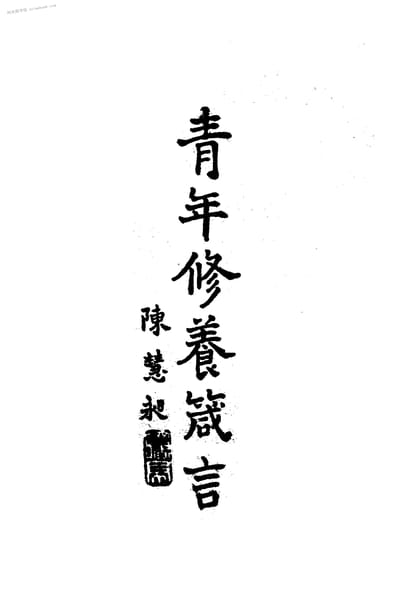 青年修養箴言
陳慧昶